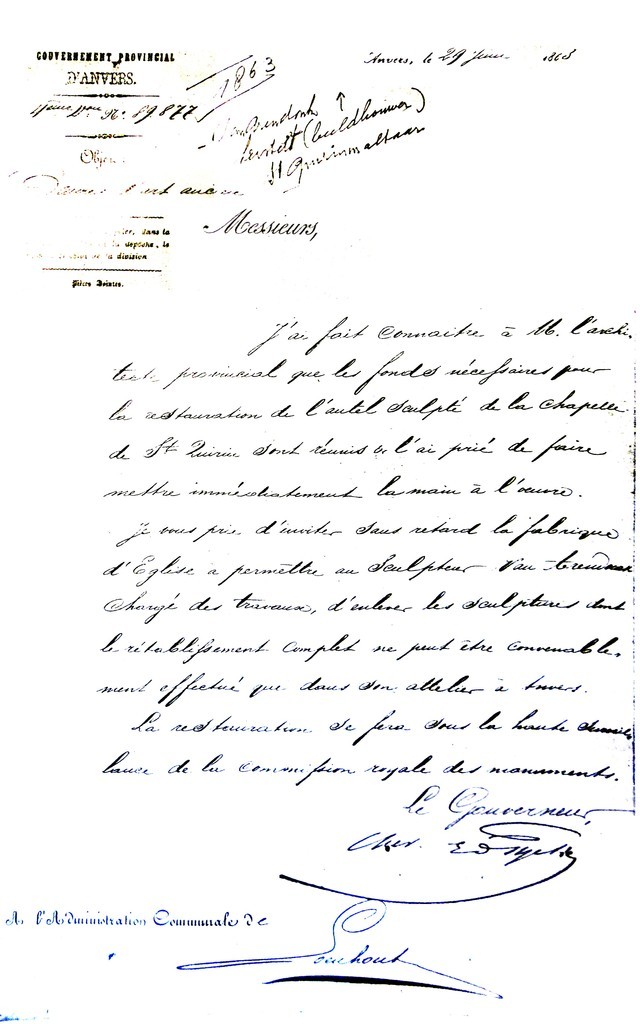 GOUVERNEMENT PROVINCIAL
D'ANVERS.
N° 89.877
1863
(beeldhouwer)
St Quirinmaltaar
Anvers, le 29 Juin 1863
Objet
d'art
dans la
dépêche, le
de la division
Pièces Jointes.
Messieurs,
J'ai fait connaitre à M. l'archi-
tecte provincial que les fonds nécessaires pour
la restauration de l'autel sculpté de la chapelle
de St Quirin sont réunis & l'ai prié de faire
mettre immédiatement la main à l'œuvre.
Je vous prie d'inviter sans retard la fabrique
d'Eglise a permettre au Sculpteur Van
chargé des travaux, d'enlever les sculptures dont
le rétablissement complet ne peut être convenable-
ment effectué que dans son attelier à Anvers.
La restauration se fera sous la haute surveil
lance de la commission royale des monuments.
Le Gouverneur,
Cher. Ed
A l'Administration Communale de
Loenhout